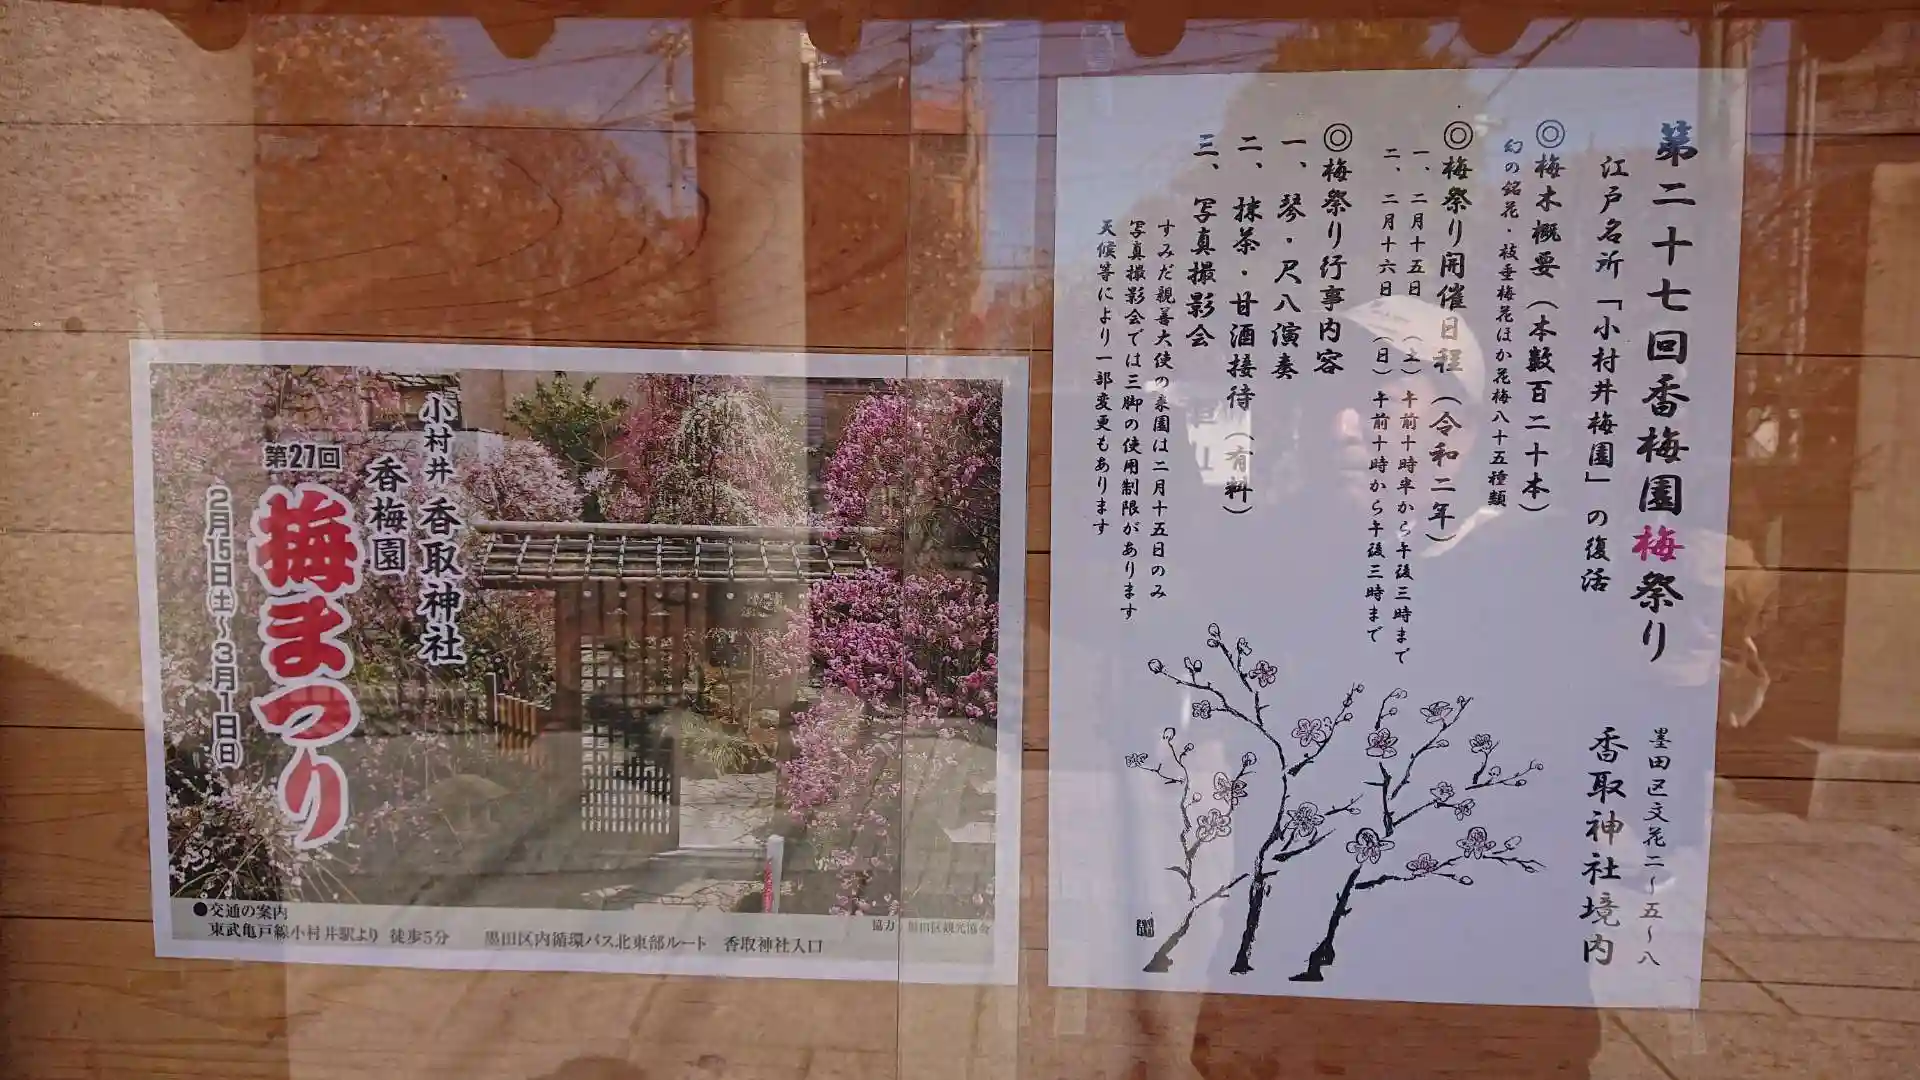 第二十七回香梅園梅祭り
江戸名所「小村井梅園」の復活
墨田区文花二〜五〜八
香取神社境内
◎梅木概要（本数百二十本）
幻の銘花・枝垂梅花ほか花梅八十五種類
◎梅祭り開催日程（令和二年）
一、二月十五日（土）午前十時半から午後三時まで
二、二月十六日（日）午前十時から午後三時まで
◎梅祭り行事内容
一、琴・尺八演奏
二、抹茶・甘酒接待（有料）
三、写真撮影会
すみだ親善大使の来園は二月十五日のみ
写真撮影会では三脚の使用制限があります
天候等により一部変更もあります
小村井 香取神社
香梅園
第27回
梅まつり
2月15日(土)～3月1日(日)
●交通の案内
東武亀戸線小村井駅より 徒歩5分 墨田区内循環バス北東部ルート 香取神社入口
協力 墨田区観光協会